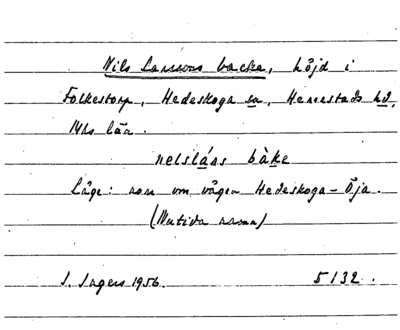 Nils Larssons backe, höjd i
Folkestorp, Hedeskoga sn, Herrestads hd,
Mhs län.
nelslá̱ns bàḵe
Läge: norr om vägen Hedeskoga–Öja.
(Nutida namn)
I. Ingers 1956. 5132.